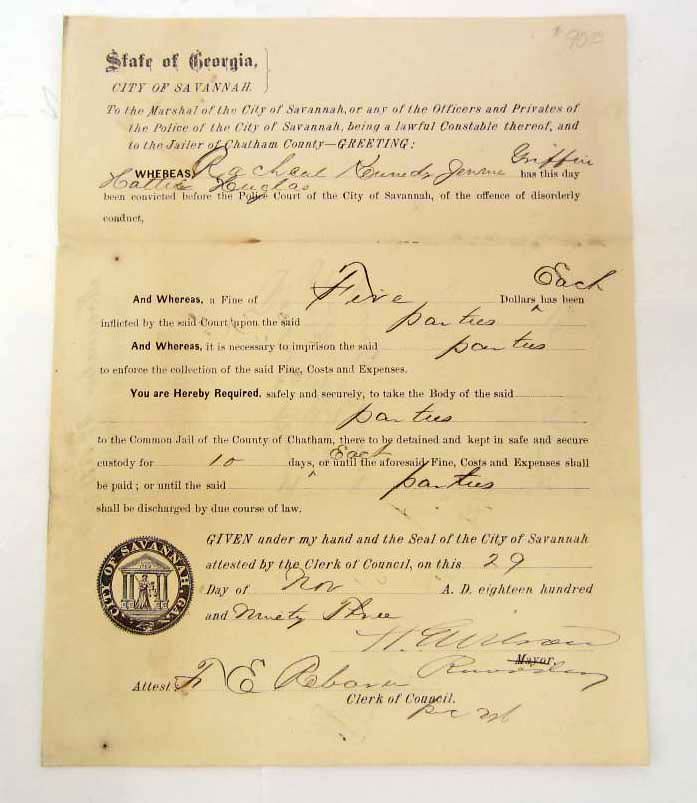 State of Georgia,
CITY OF SAVANNAH.
To the Marshal of the City of Savannah, or any of the Officers and Privates of
the Police of the City of Savannah, being a lawful Constable thereof, and
to the Jailer of Chatham County—GREETING:
WHEREAS, Racheal Jennie Griffin has this day
Hattie
been convicted before the Police Court of the City of Savannah, of the offence of disorderly
conduct,
Each
And Whereas, a Fine of Five Dollars ^ has been
inflicted by the said Court upon the said parties
And Whereas, it is necessary to imprison the said parties
to enforce the collection of the said Fine, Costs and Expenses.
You are Hereby Required, safely and securely, to take the Body of the said
parties
to the Common Jail of the County of Chatham, there to be detained and kept in safe and secure
Each
custody for 10 days, ^ or until the aforesaid Fine, Costs and Expenses shall
be paid; or until the said parties
shall be discharged by due course of law.
CITY OF SAVANNAH, GA.
GIVEN under my hand and the Seal of the City of Savannah
attested by the Clerk of Council, on this 29
Day of Nov A. D. eighteen hundred
and Ninety Three
Mayor
Attest: F E Rebarer
Clerk of Council.